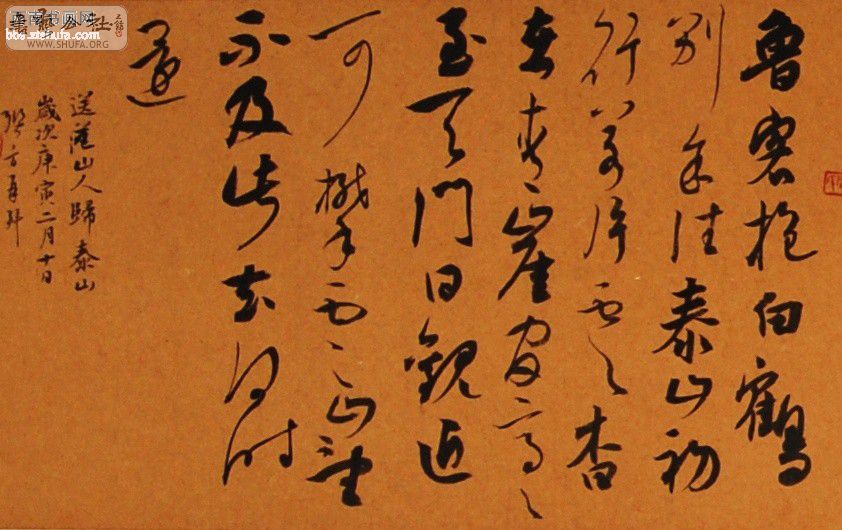 魯客抱白鶴
別余往泰山初
行若片雲杳
在青崖間高〻
至天門日觀近
可攀雲山望
不及此去何時
還
送范山人歸泰山
歲次庚寅二月十日
WWW.SHUFA.ORG